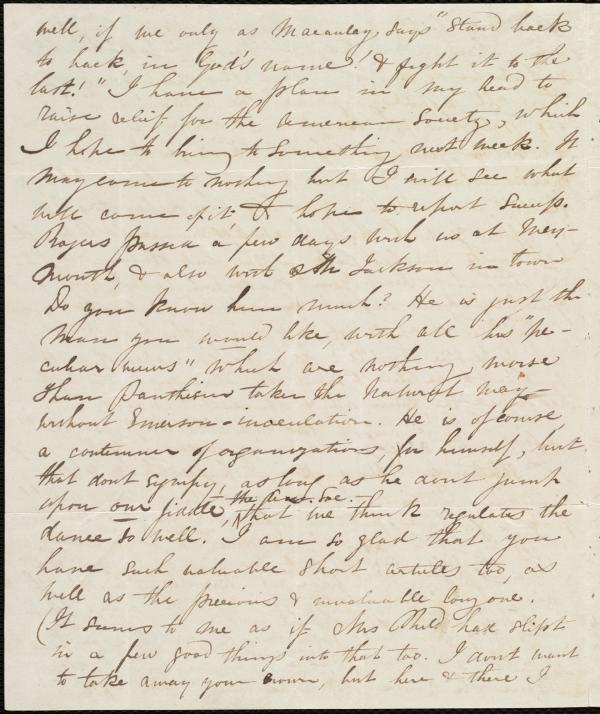 well, if we only as Macaulay says "Stand back
to back, in God's name! & fight it to the
last!" I have a plan in my head to
raise relief for the American Society, which
I hope to bring to something next week. It
may come to nothing but I will see what
will come of it, & hope to report
Rogers passed a few days with us at Wey-
mouth, & also with Jackson in town
Do you know him much? He is just the
man you would like, with all his "pe-
culiar views" which are nothing worse
than Pantheism taken the natural way—
without Emerson-inoculation. He is of course
a contemner of organizations, for himself, but
that dont signify, as long as he dont jump
upon our fiddle, the Am. Soc.
that we think regulates the
dance so well. I am so glad that you
have such valuable short articles too, as
well as the precious & invaluable long one.
(It seems to me as if Mrs Child had slipt
in a few good things into that too. I dont want
to take away your crown, but here & there I